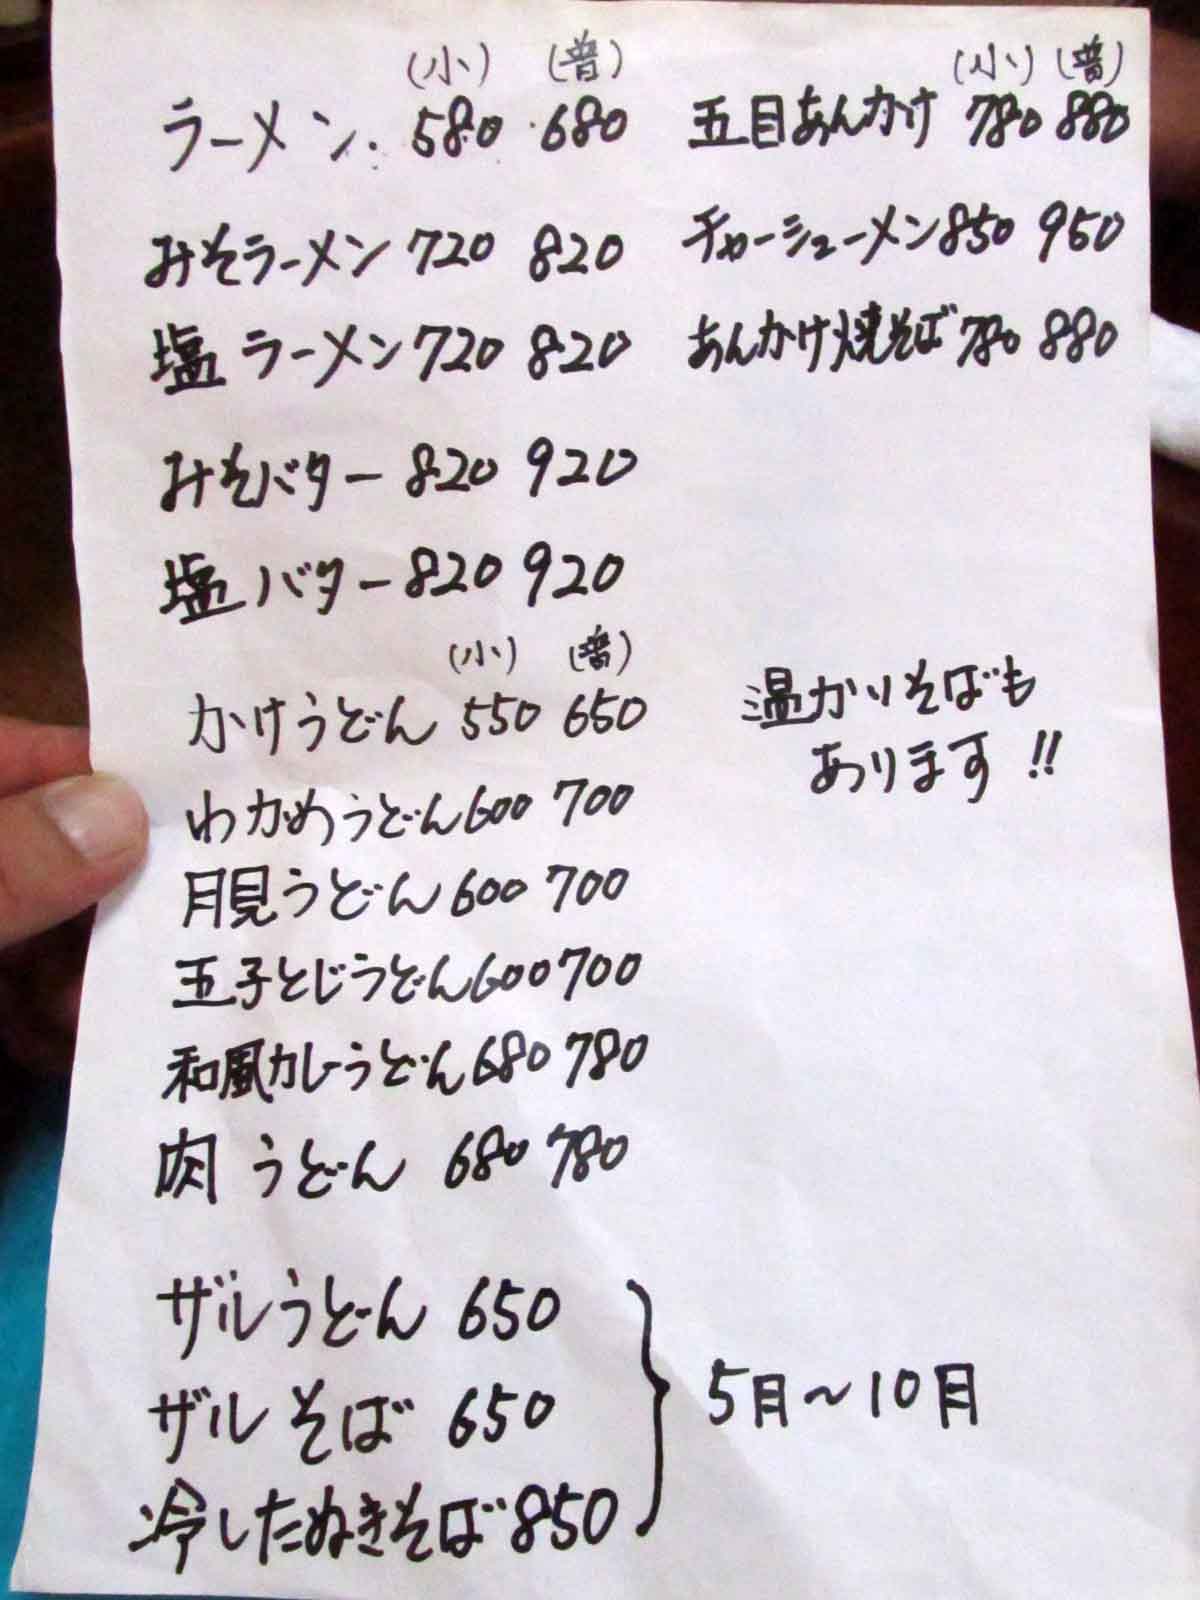 (小) (普)
ラーメン. 580 680
みそラーメン 720 820
塩ラーメン 720 820
みそバター 820 920
塩バター 820 920
(小) (普)
かけうどん 550 650
わかめうどん 600 700
月見うどん 600 700
玉子とじうどん 600 700
和風カレーうどん 680 780
肉うどん 680 780
ザルうどん 650
ザルそば 650
冷したぬきそば 850
5月〜10月
(小) (普)
五目あんかけ 780 880
チャーシューメン 850 950
あんかけ焼そば 780 880
温かいそばも
あります!!